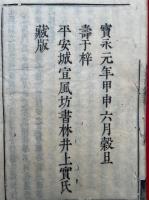 寳永元年甲申六月穀旦
壽于梓
平安城宣風坊書林井上實氏
藏版